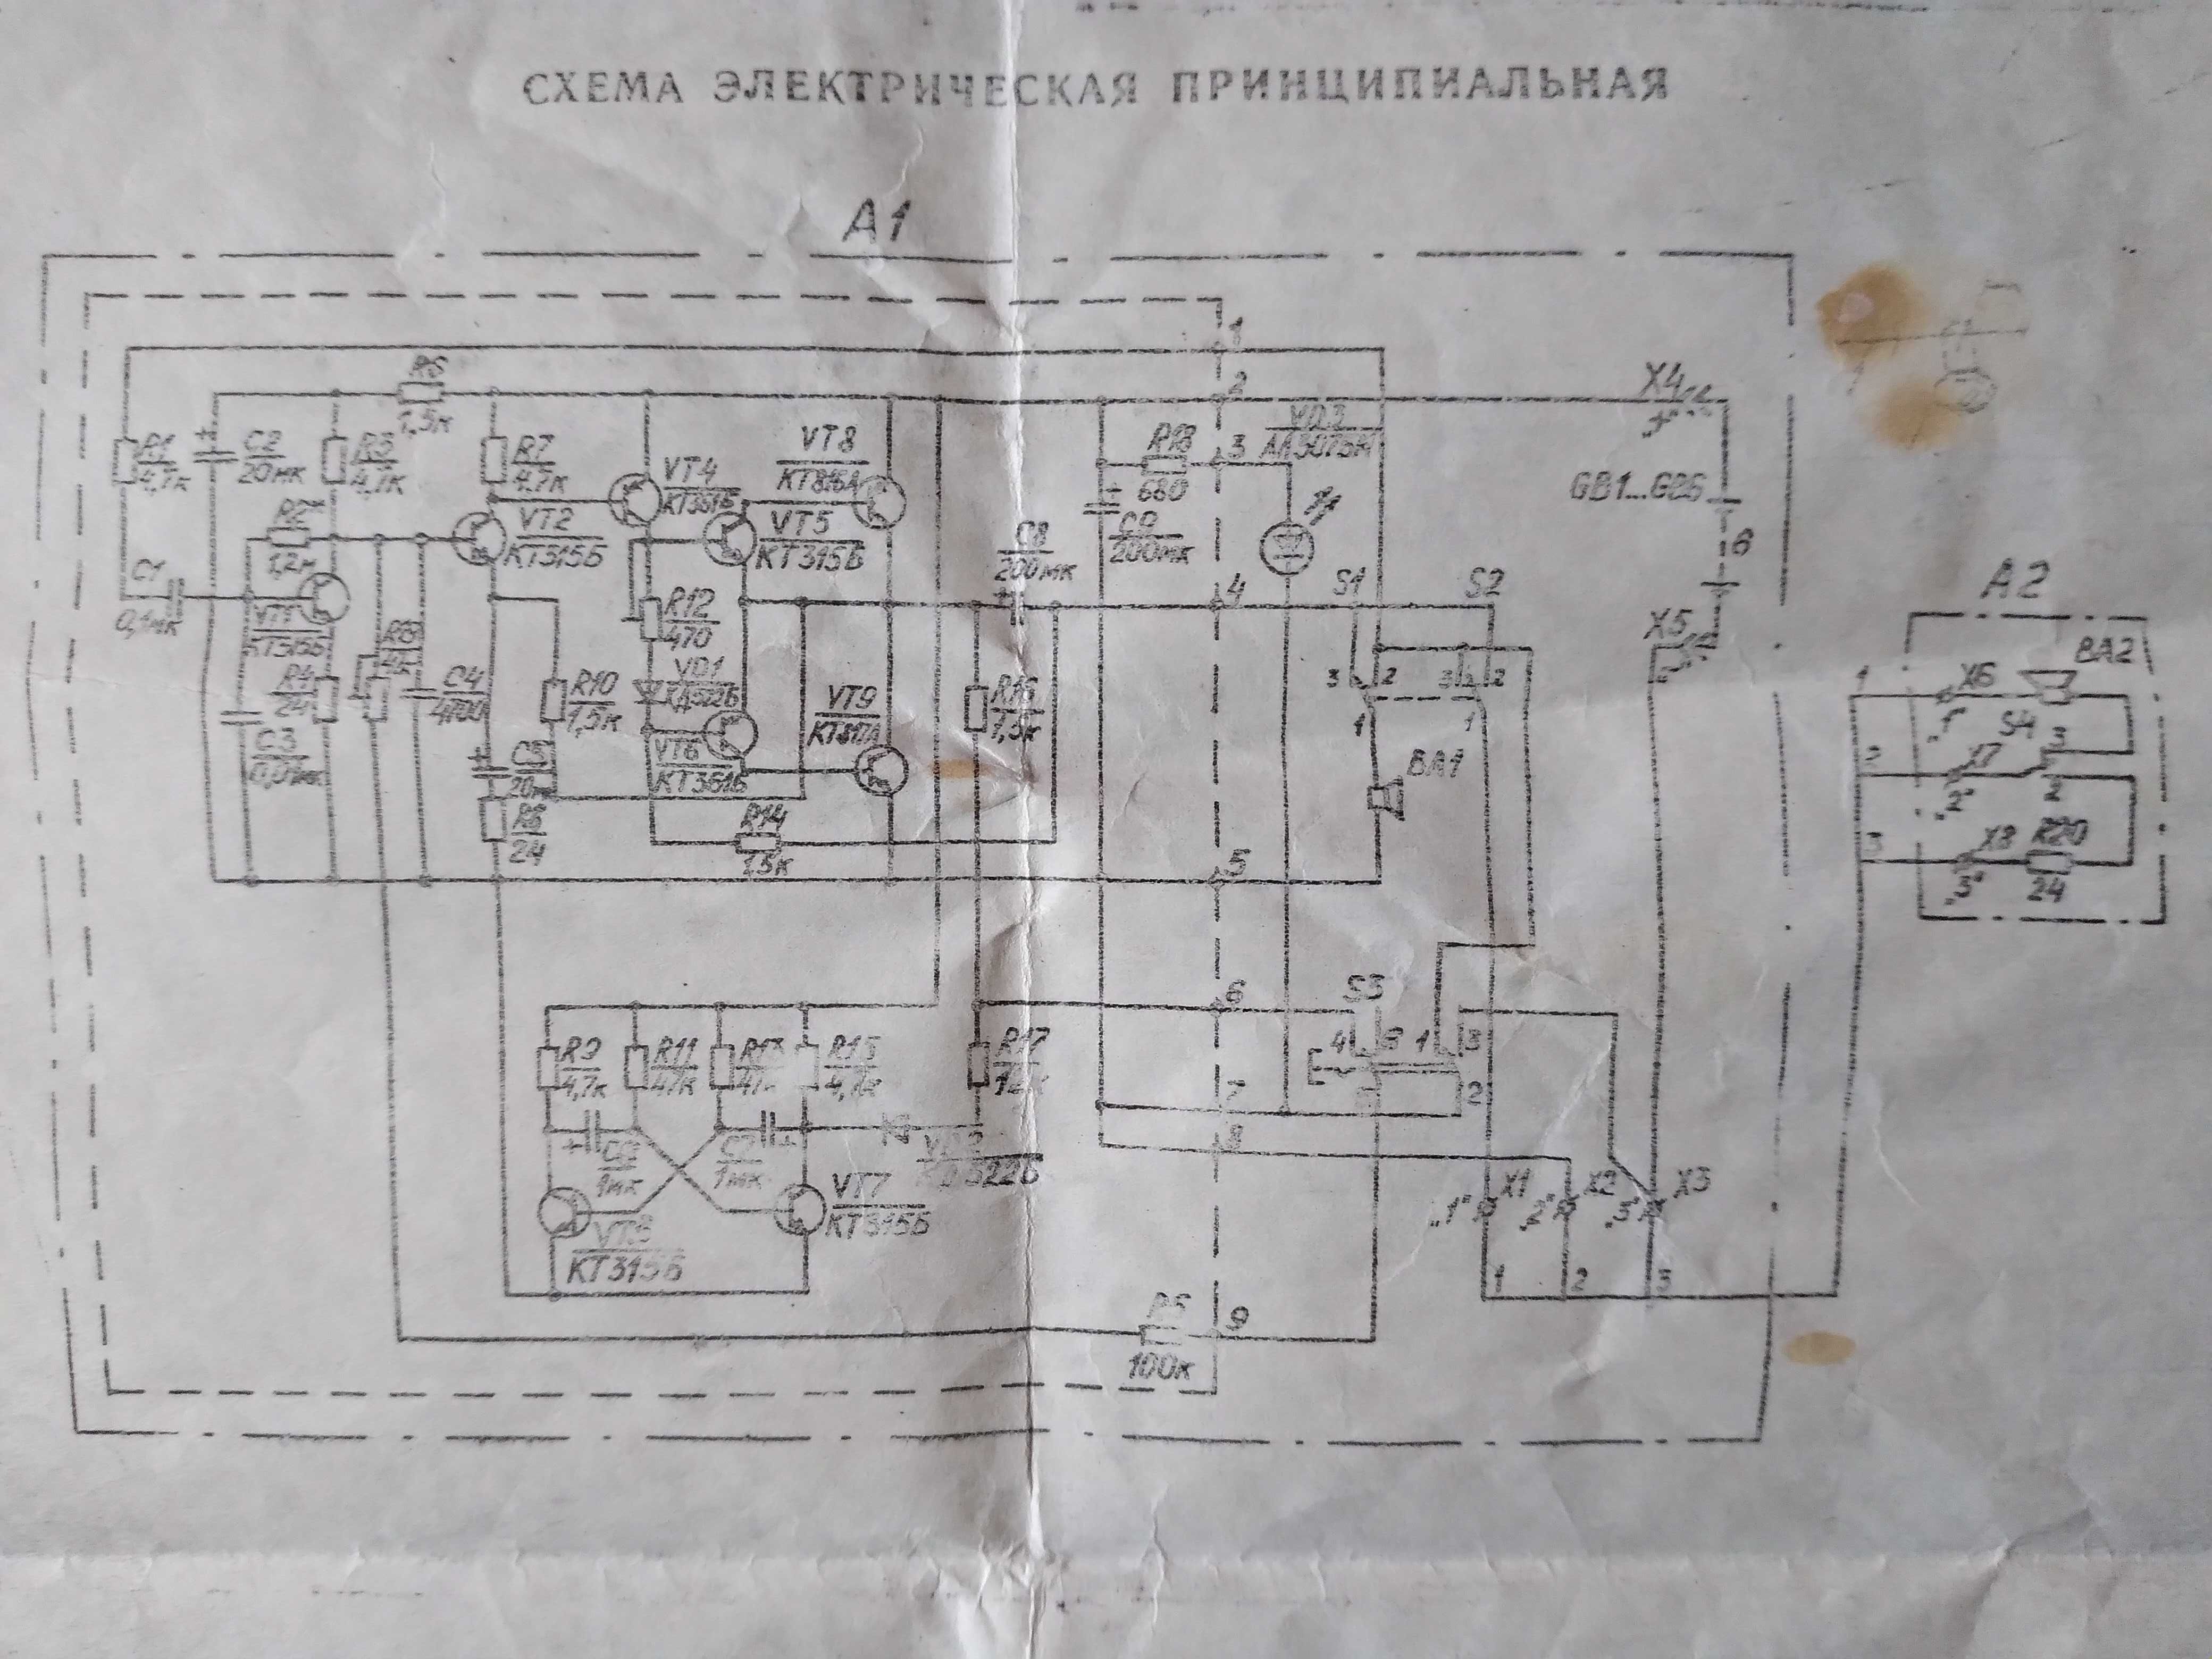 СХЕМА ЭЛЕКТРИЧЕСКАЯ ПРИНЦИПИАЛЬНАЯ
А1
1
R1
4,7к
С2
20мк
R3
4,7к
1,5к
R7
4,7к
VT4
КТ361Б
VT8
КТ816А
2
R18
680
3
VD3
X4
GB1...GB6
6
X5
С1
0,1мк
R2*
1,2м
VT1
КТ315Б
VT2
КТ315Б
VT5
КТ315Б
С8
200мк
С9
200мк
4
S1
S2
R4
24
С4
4700
С3
0,01мк
R10
1,5к
R12
470
VD1
КД522Б
VT6
КТ361Б
VT9
КТ817А
R16
1,5к
3
2
3
2
1
1
ВА1
С5
20мк
24
R14
1,5к
5
А2
1
X6
ВА2
"1"
2
X7
3
"2"
2
3
X8
R20
"3"
24
6
S3
R9
4,7к
R11
47к
R15
4,7к
R17
4
1
3
7
2
8
1мк
1мк
VT7
КТ315Б
КТ315Б
"1"
X1
"2"
X2
"3"
X3
1
2
3
9
100к